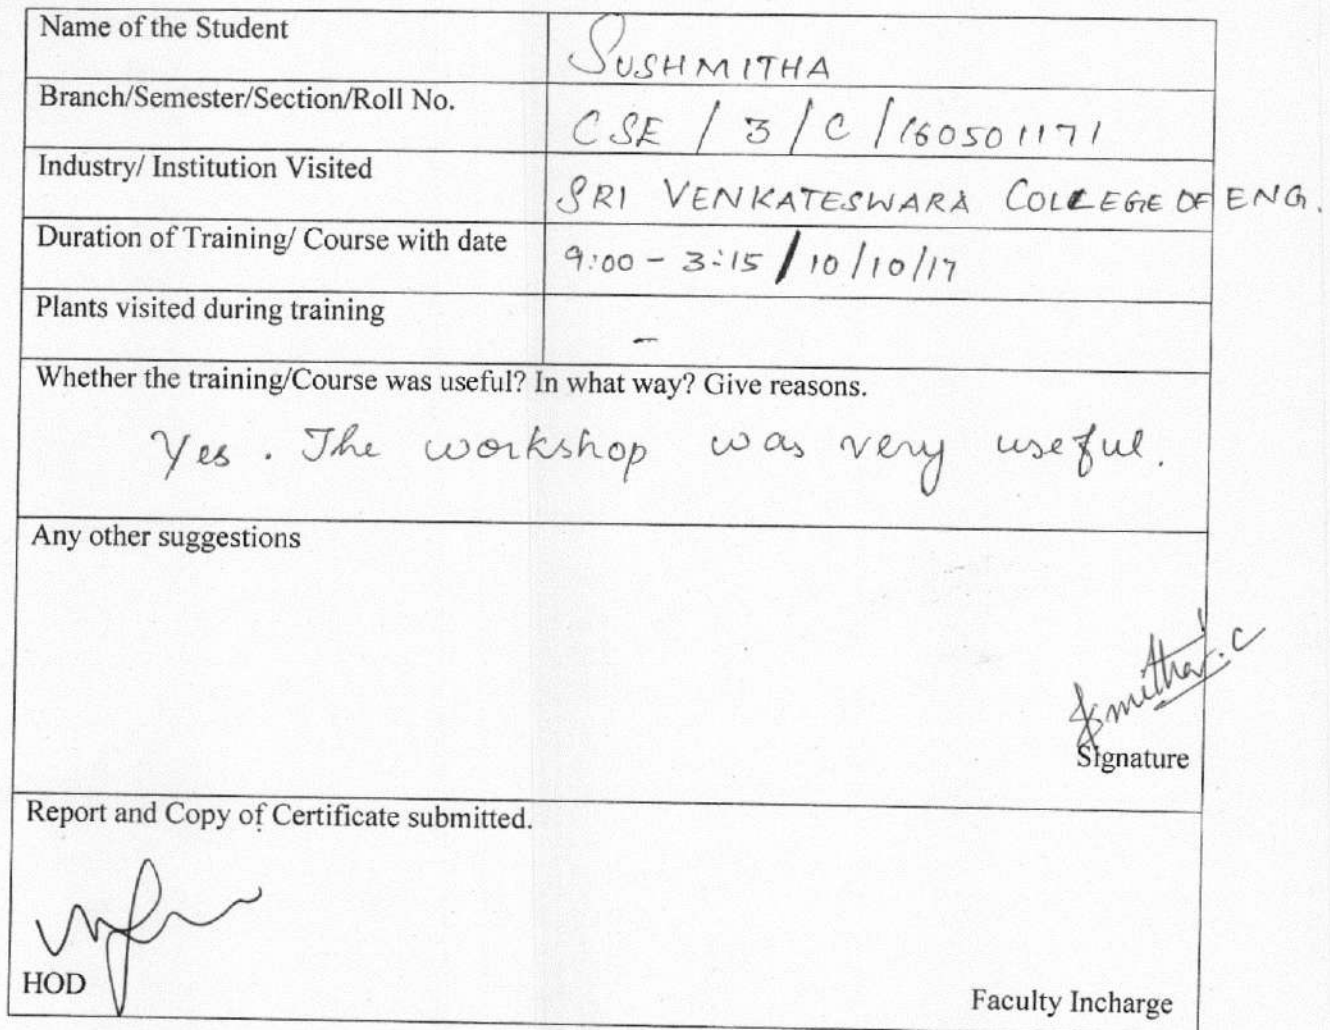 Name of the Student
SUSHMITHA
Branch/Semester/Section/Roll No.
CSE / 3 / C / 160501171
Industry/ Institution Visited
SRI VENKATESWARA COLLEGE OF ENG.
Duration of Training/ Course with date
9:00 - 3:15 / 10/10/17
Plants visited during training
-
Whether the training/Course was useful? In what way? Give reasons.
Yes. The workshop was very useful.
Any other suggestions
Signature
Report and Copy of Certificate submitted.
HOD
Faculty Incharge